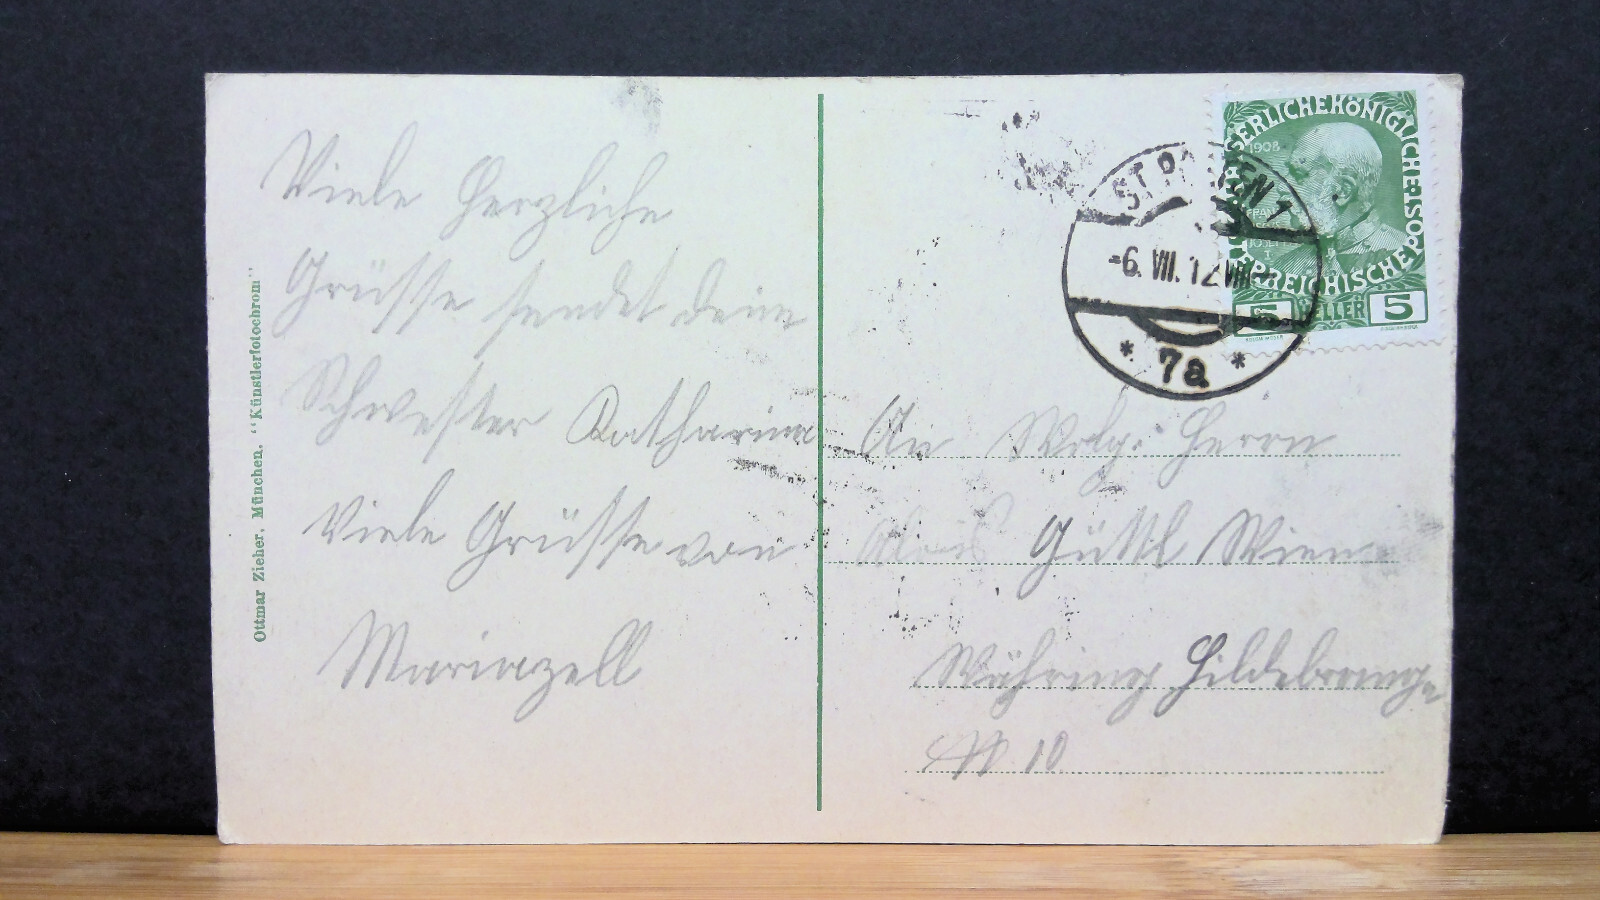 Viele Herzliche
Grüsse sendet deine
Schwester Katharina
Viele Grüsse von
Mariazell
Ottmar Zieher, München. "Künstlerfotochrom"
KAISERLICHEKÖNIGLICHE
ÖSTERREICHISCHE
1908
FRANZ
JOSEF I
5 HELLER 5
ST. PÖLTEN 1
-6. VII. 12 VIII
* 7a *
An Wolg. Herrn
Alois Güttl Wien
Währing
No 10